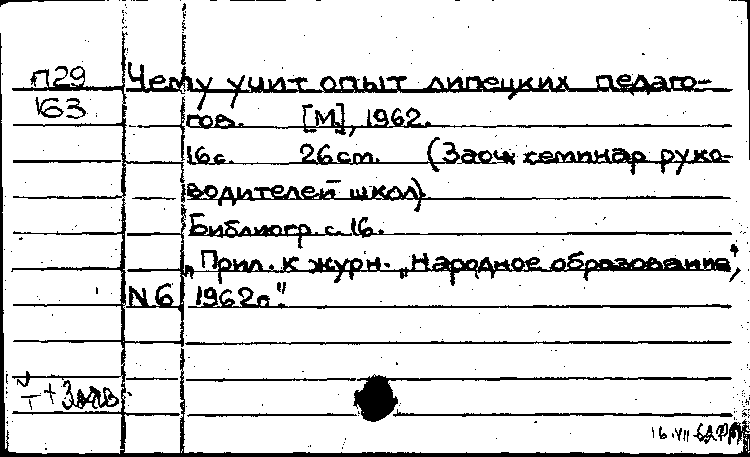 П29 Чему учит опыт липецких педаго-
163 гов. [М], 1962.
16с. 26cm. (Заоч семинар руко-
водителей школ)
Библиогр. с. 16.
„Прил. к журн. „Народное образование“,
N6 1962г.“
16.VII